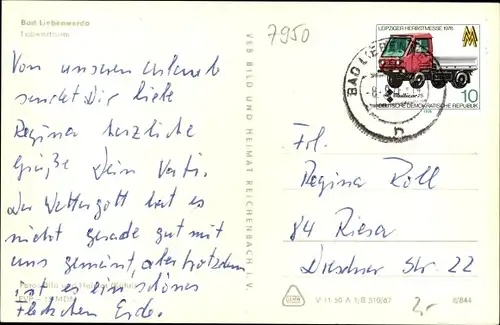 Bad Liebenwerda
Lubwartturm
7950
Von unseren Urlaub
sendet Dir liebe
Regina herzliche
Grüße Dein Vati.
Der Wettergott hat es
nicht gerade gut mit
uns gemeint, aber trotzdem
ist es ein schönes
Fleckchen Erde.
EVP
MDN
VEB BILD UND HEIMAT REICHENBACH I. V.
LEIPZIGER HERBSTMESSE 1978
MM
10
DEUTSCHE DEMOKRATISCHE REPUBLIK
BAD LIEBE
Frl.
Regina Roll
84 Riesa
Dresdner Str. 22
V 11 50 A 1/B 510/67
8/844
2,-